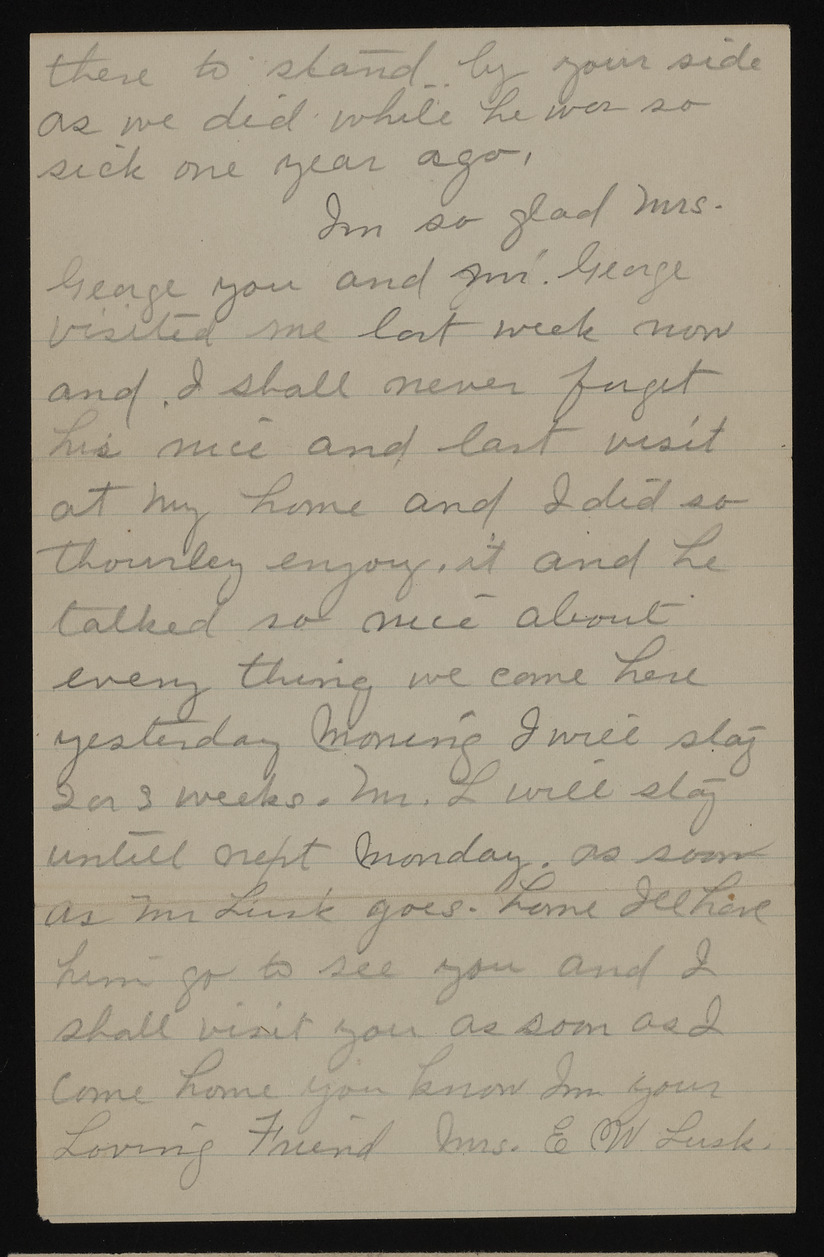 there to stand by your side
as we did while he was so
sick one year ago,
Im so glad Mrs.
George you and Mr. George
visited me last week now
and I shall never forget
his nice and last visit
at my home and I did so
thourley enjoy it and he
talked so nice about
every thing we come here
yesterday Moning I will stay
2 or 3 weeks. Mr. L will stay
untill next Monday. as soon
as Mr Lusk goes home Ill have
him go to see you and I
shall visit you as soon as I
come home you know Im your
Loving Friend Mrs. E W Lusk.